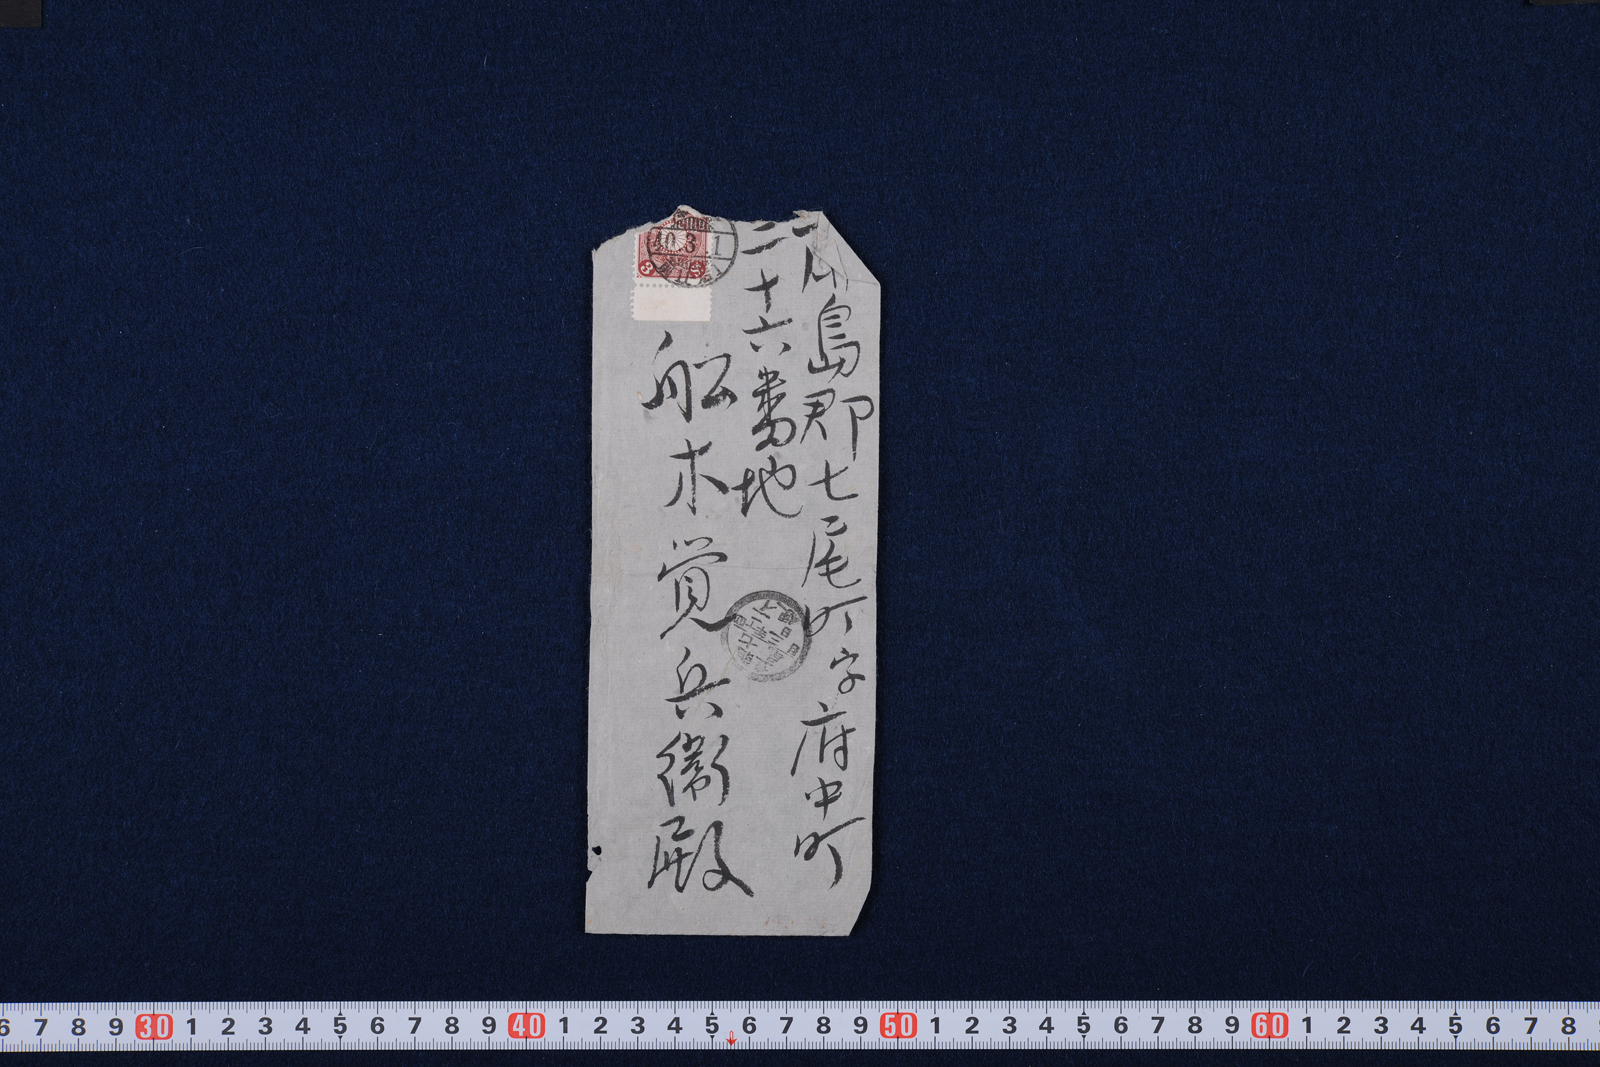 鹿島郡七尾町字府中町
二十六番地
舩木覚兵衛殿
40 3 1
3
6 7 8 9 30 1 2 3 4 5 6 7 8 9 40 1 2 3 4 5 6 7 8 9 50 1 2 3 4 5 6 7 8 9 60 1 2 3 4 5 6 7 8